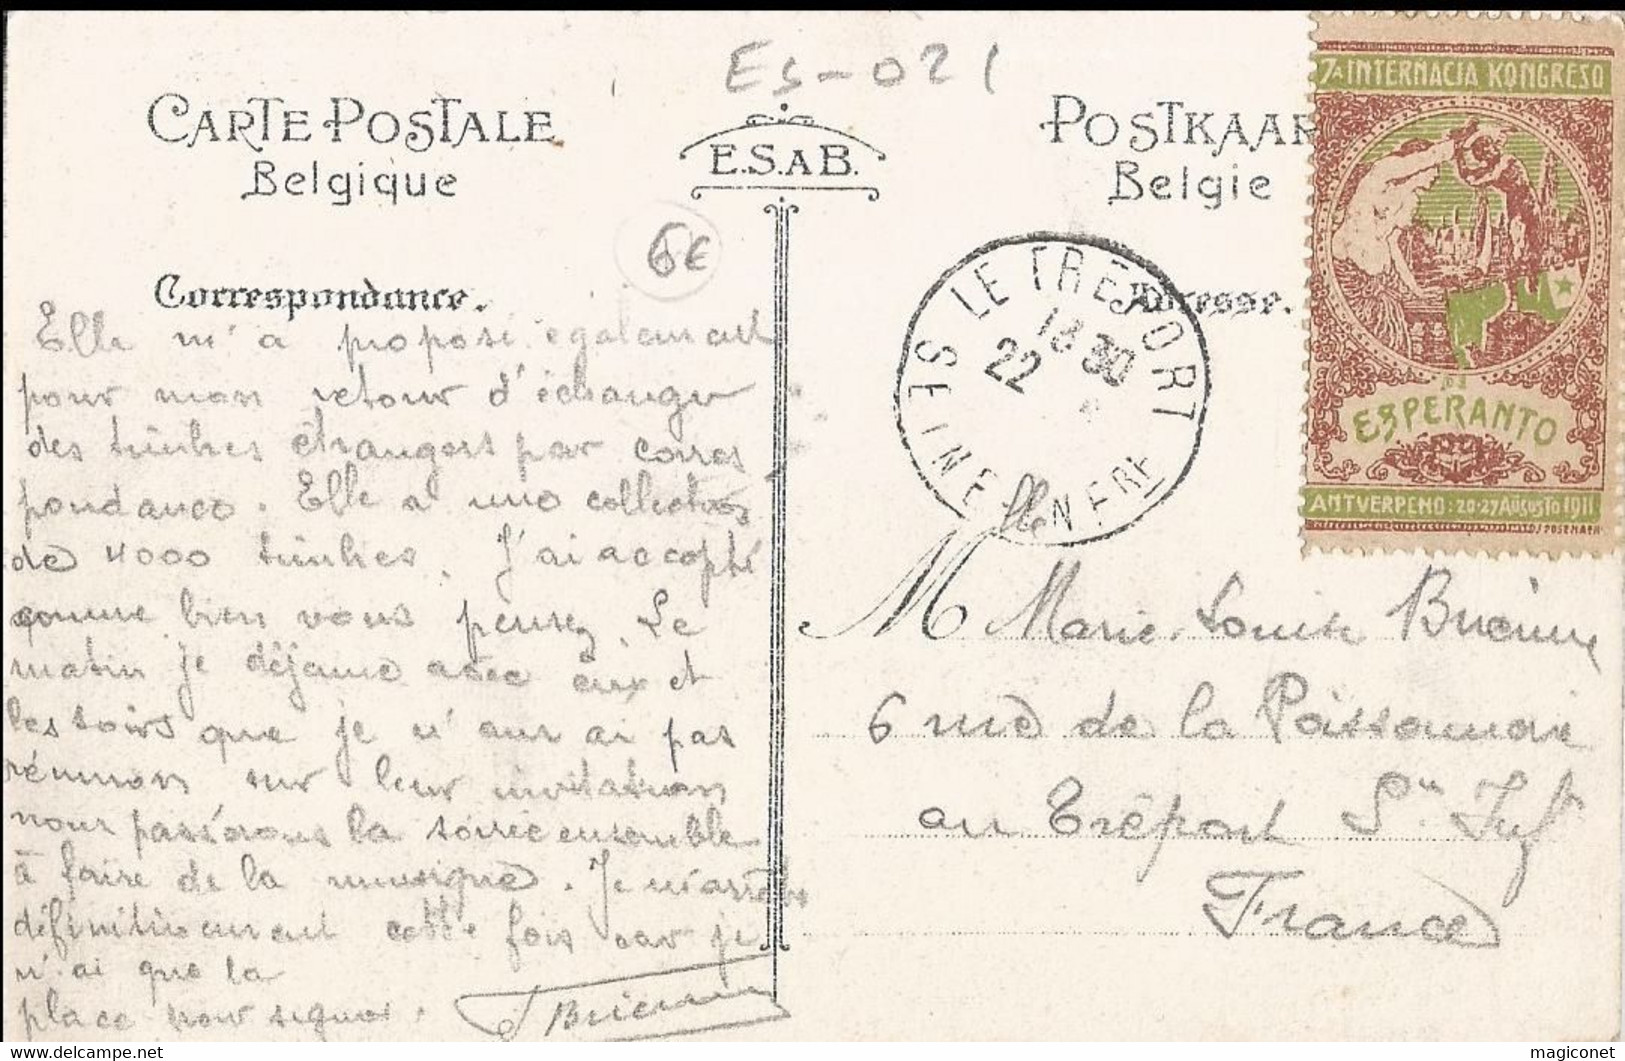 Es-021
CARTE POSTALE
Belgique
E.S.A B.
POSTKAAR
Belgie
6€
Correspondance.
Adresse.
Elle m'a proposé également
pour mon retour d'échanger
des timbres étrangers par corres
pondance. Elle a une collection
de 4000 timbres. J'ai accepté
comme bien vous pensez. Le
matin je déjeune avec eux et
les soirs que je n'aurai pas
réunion sur leur invitation
nous passerons la soirée ensemble
à faire de la musique. Je m'arrête
définitivement cette fois car je
n'ai que la
place pour signer.
J Brienne
LE TREPORT
18 30
22
SEINE INFRE
7A INTERNACIA KONGRESO
DE
ESPERANTO
ANTVERPENO: 20-27 AÜGUSTO 1911
Mlle Marie-Louise Brienne
6 rue de la Poissonnerie
au Tréport Sne Infre
France
magiconet